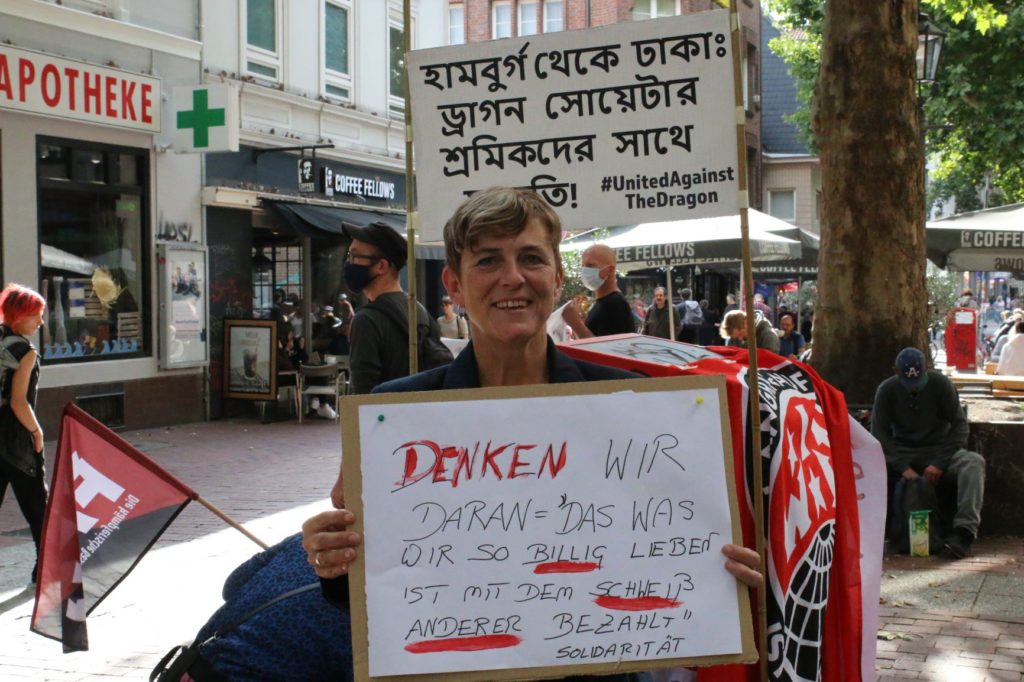 APOTHEKE
COFFEE FELLOWS
হামবুর্গ থেকে ঢাকাঃ
ড্রাগন সোয়েটার
শ্রমিকদের সাথে
#UnitedAgainst
TheDragon
COFFEE FELLOWS
COFFEE
DENKEN WIR
DARAN = "DAS WAS
WIR SO BILLIG LIEBEN
IST MIT DEM SCHWEIß
ANDERER BEZAHLT"
SOLIDARITÄT
Die kämpferische